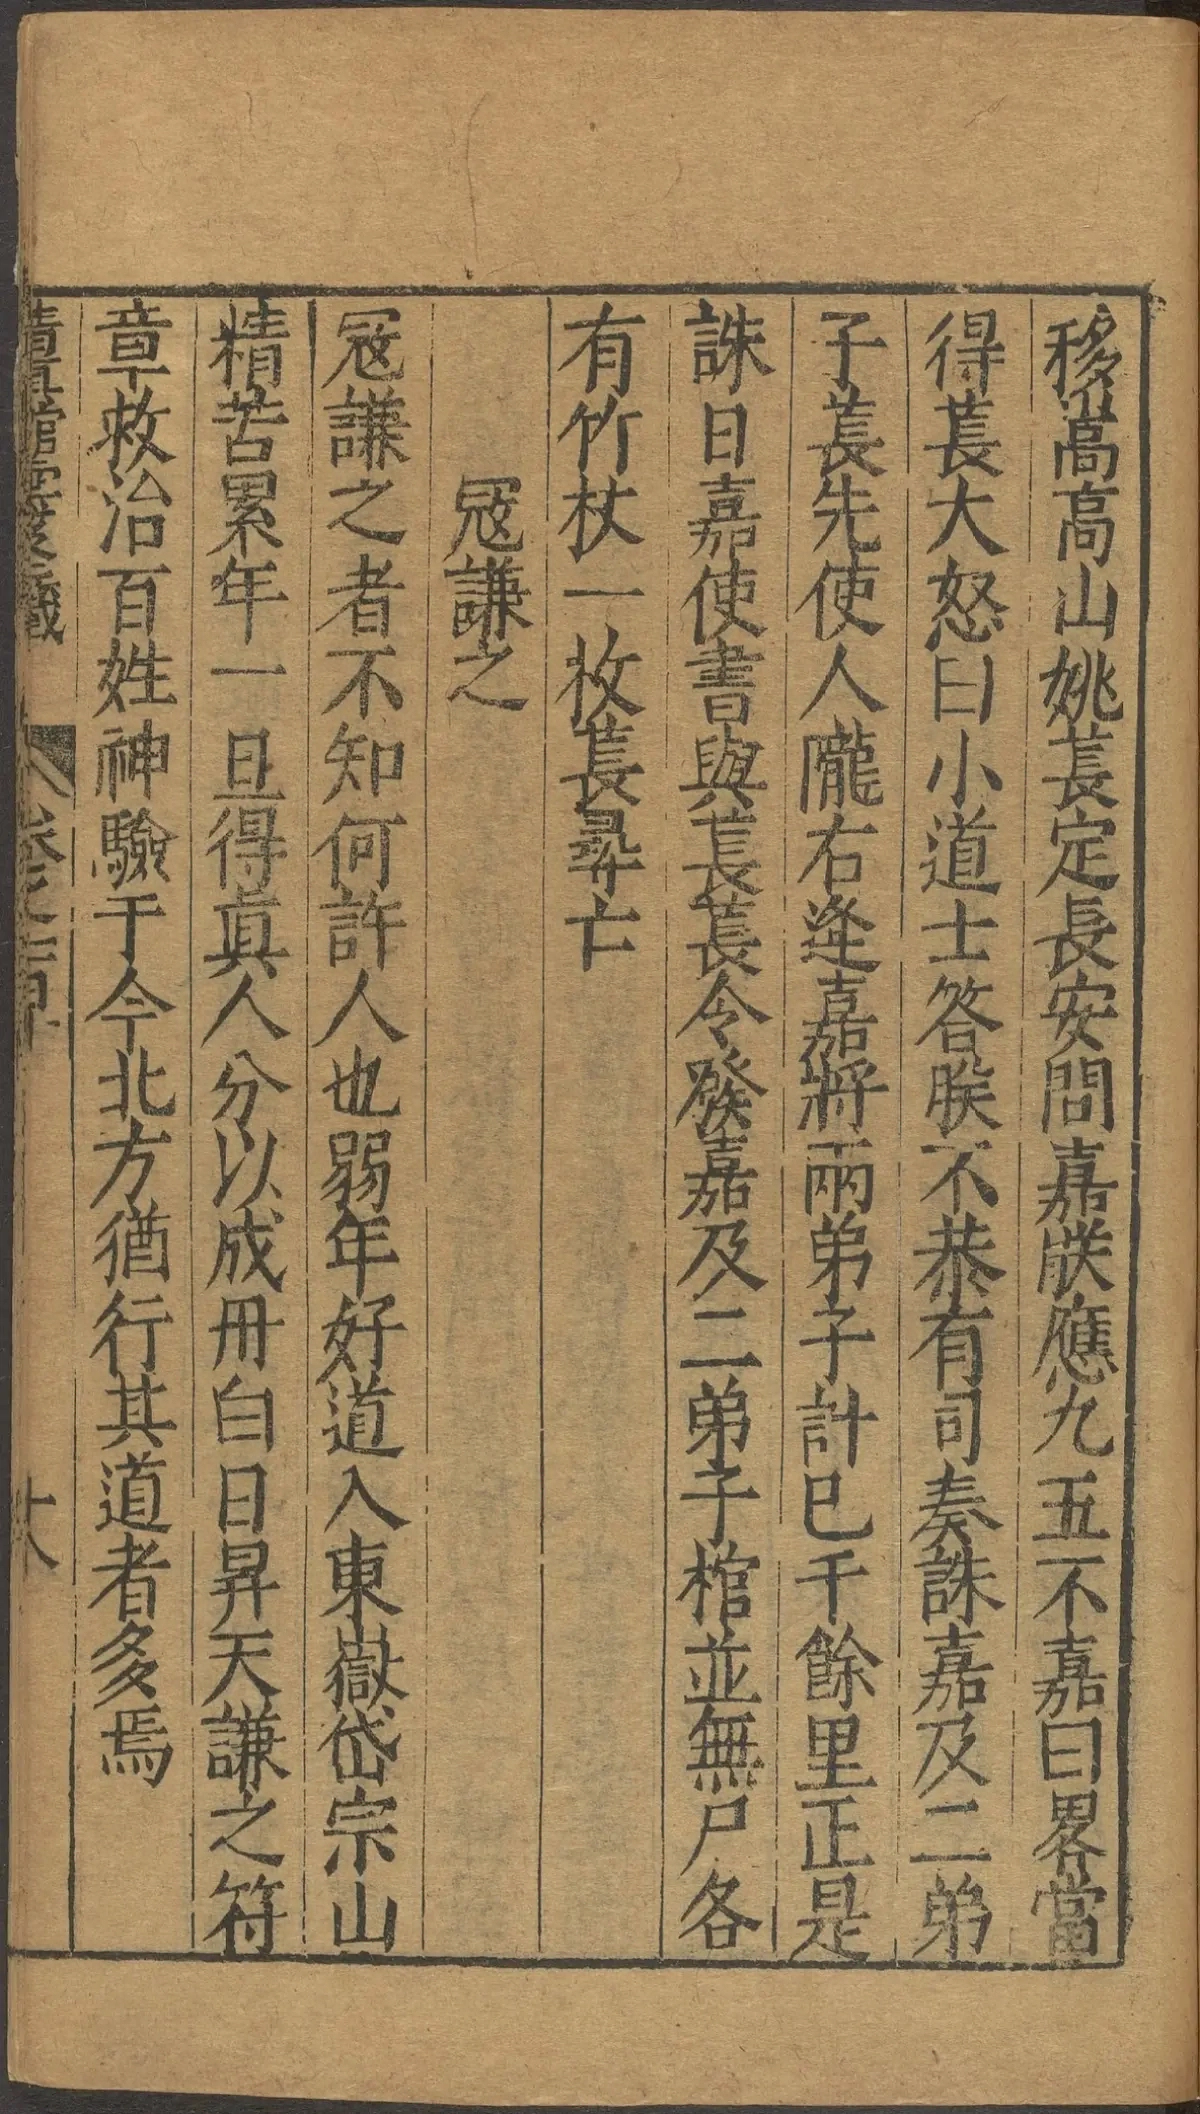 移嵩高山姚萇定長安問嘉朕應九五不嘉曰畧當
得萇大怒曰小道士答朕不恭有司奏誅嘉及二弟
子萇先使人隴右逄嘉將兩弟子計已千餘里正是
誅日嘉使書與萇萇令發嘉及二弟子棺並無尸各
有竹杖一枚萇尋亡
冦謙之
冦謙之者不知何許人也弱年好道入東嶽岱宗山
精苦累年一旦得眞人分以成冊白日昇天謙之符
章救治百姓神驗于今北方猶行其道者多焉
卷之二
十八